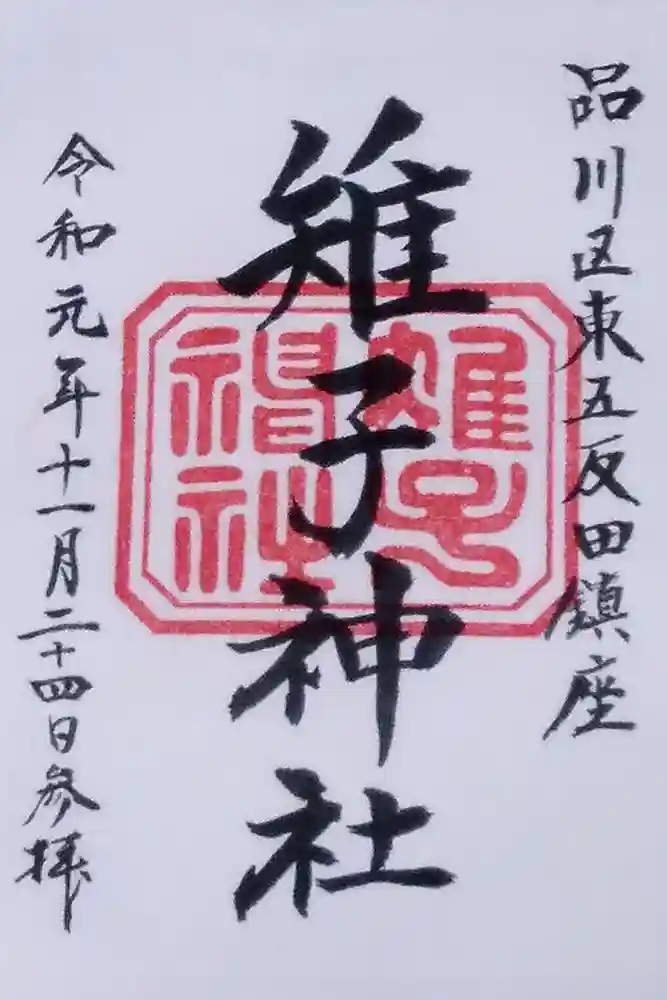 品川区東五反田鎮座
雉子神社
雉子神社
令和元年十一月二十四日参拝